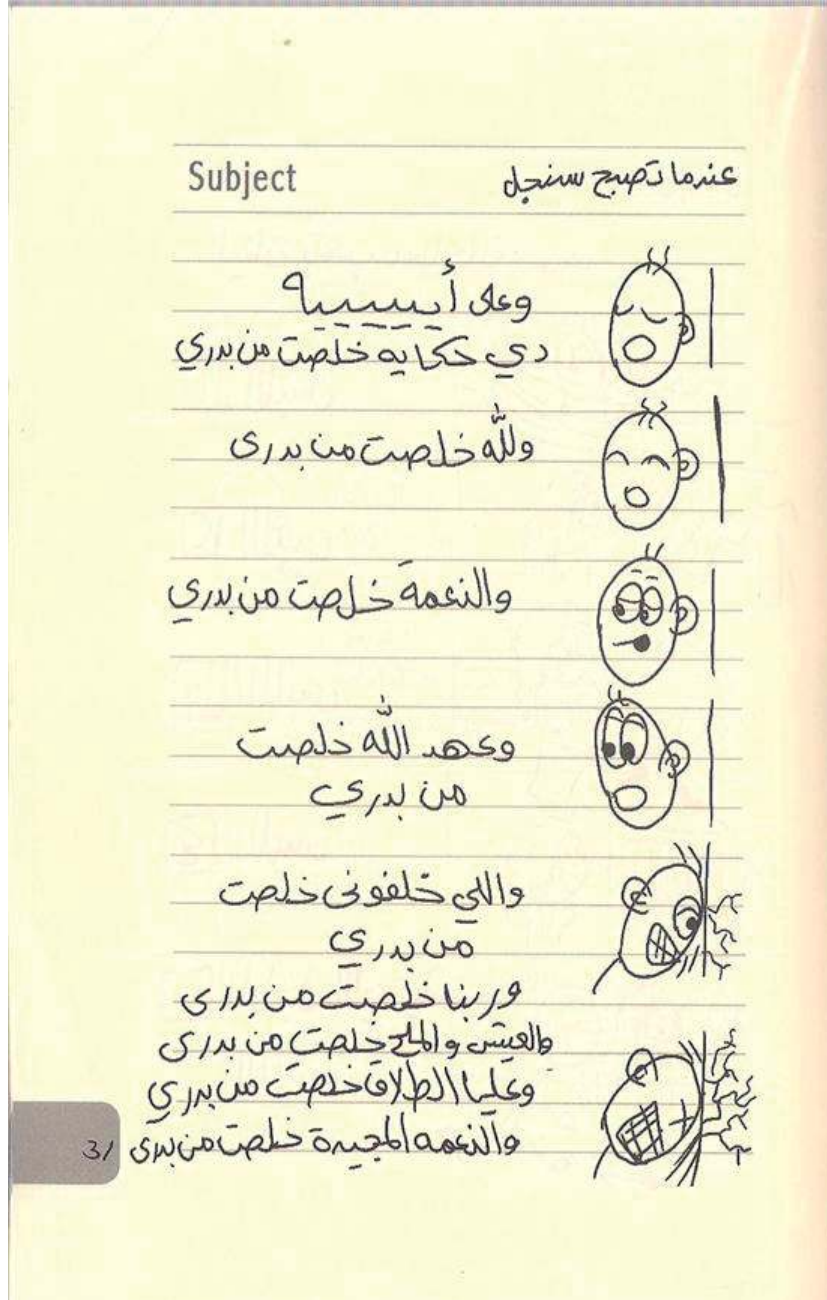 Subject
عندما تصبح سنجل
وعلى أييييييه
دي حكايه خلصت من بدري
ولله خلصت من بدرى
والنعمة خلصت من بدري
وعهد الله خلصت
من بدري
واللي خلفونى خلصت
من بدري
وربنا خلصت من بدرى
والعيش والملح خلصت من بدرى
وعليا الطلاق خلصت من بدري
والنعمه المجيدة خلصت من بدرى
31